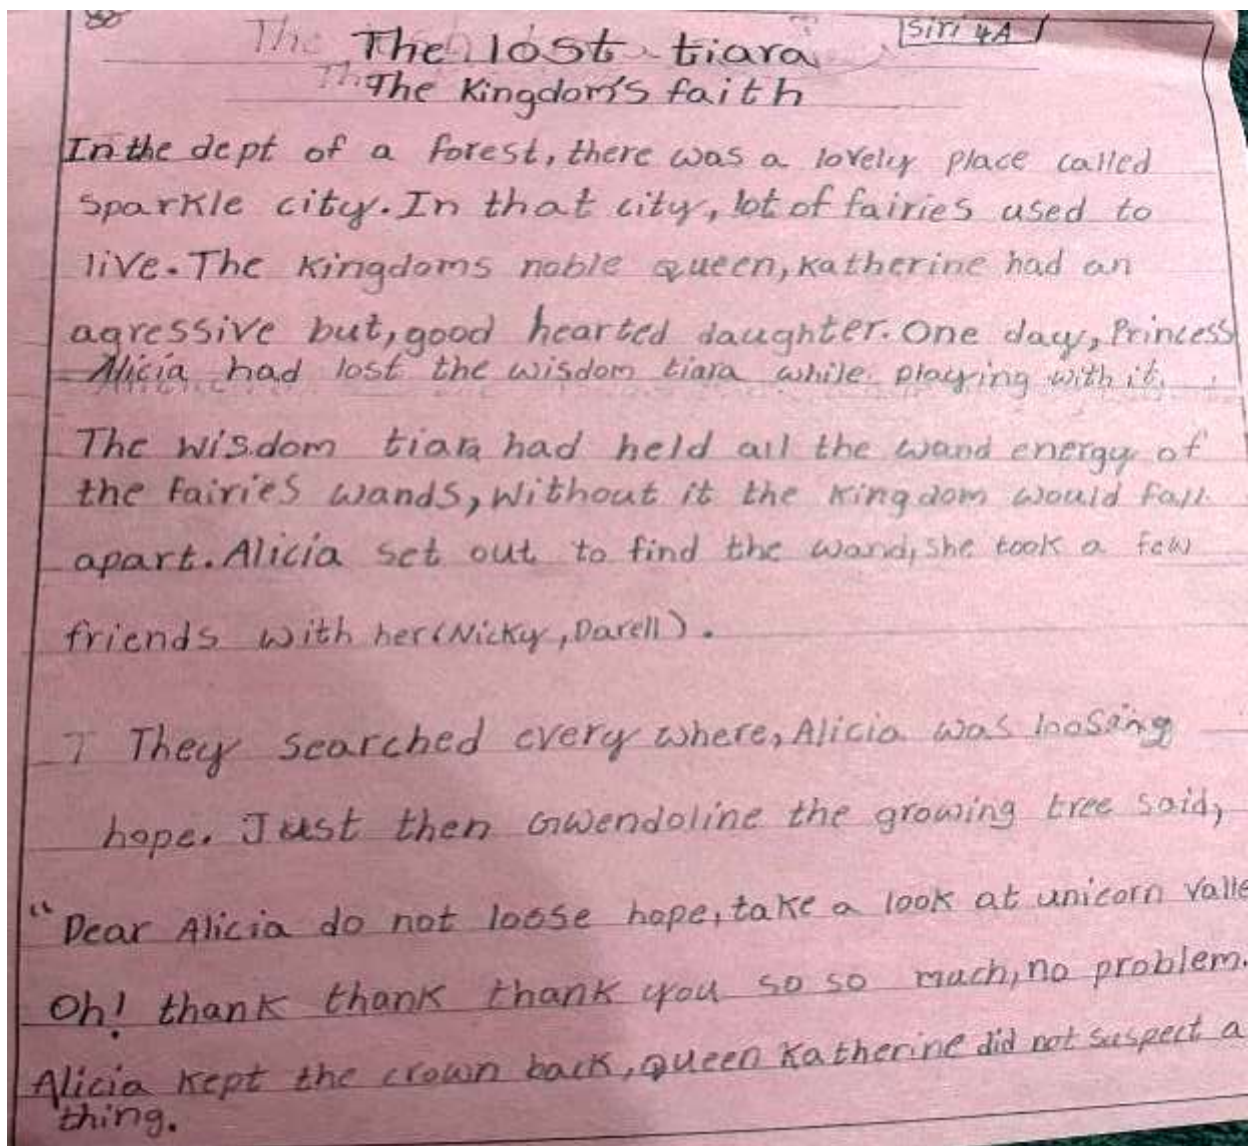 Siri 4A
The lost tiara
The Kingdom's faith
In the dept of a forest, there was a lovely place called
Sparkle city. In that city, lot of fairies used to
live. The kingdoms noble queen, Katherine had an
agressive but, good hearted daughter. One day, Princess
Alicia had lost the wisdom tiara while playing with it.
The wisdom tiara had held all the wand energy of
the fairies wands, without it the kingdom would fall
apart. Alicia set out to find the wand, she took a few
friends with her (Nicky, Darell).
T They searched every where, Alicia was loosing
hope. Just then Gwendoline the growing tree said,
"Dear Alicia do not loose hope, take a look at unicorn Valle
Oh! thank thank thank you so so much, no problem.
Alicia kept the crown back, queen Katherine did not suspect a
thing.